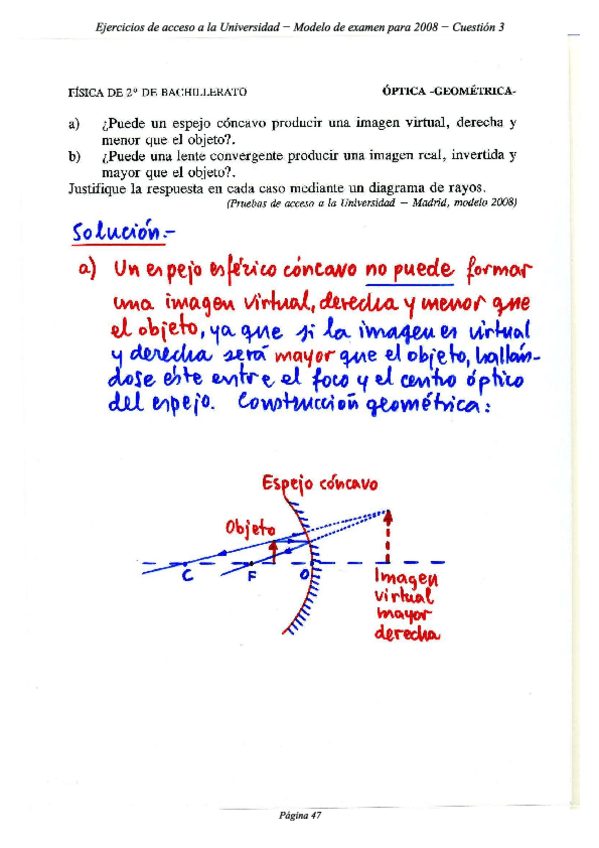 Ejercicios de acceso a la Universidad − Modelo de examen para 2008 − Cuestión 3
FÍSICA DE 2º DE BACHILLERATO ÓPTICA -GEOMÉTRICA-
a) ¿Puede un espejo cóncavo producir una imagen virtual, derecha y
menor que el objeto?.
b) ¿Puede una lente convergente producir una imagen real, invertida y
mayor que el objeto?.
Justifique la respuesta en cada caso mediante un diagrama de rayos.
(Pruebas de acceso a la Universidad − Madrid, modelo 2008)
Solución.-
a) Un espejo esférico cóncavo no puede formar
una imagen virtual, derecha y menor que
el objeto, ya que si la imagen es virtual
y derecha será mayor que el objeto, hallán-
dose éste entre el foco y el centro óptico
del espejo. Construcción geométrica:
Espejo cóncavo
Objeto
C F O
Imagen
virtual
mayor
derecha
Página 47